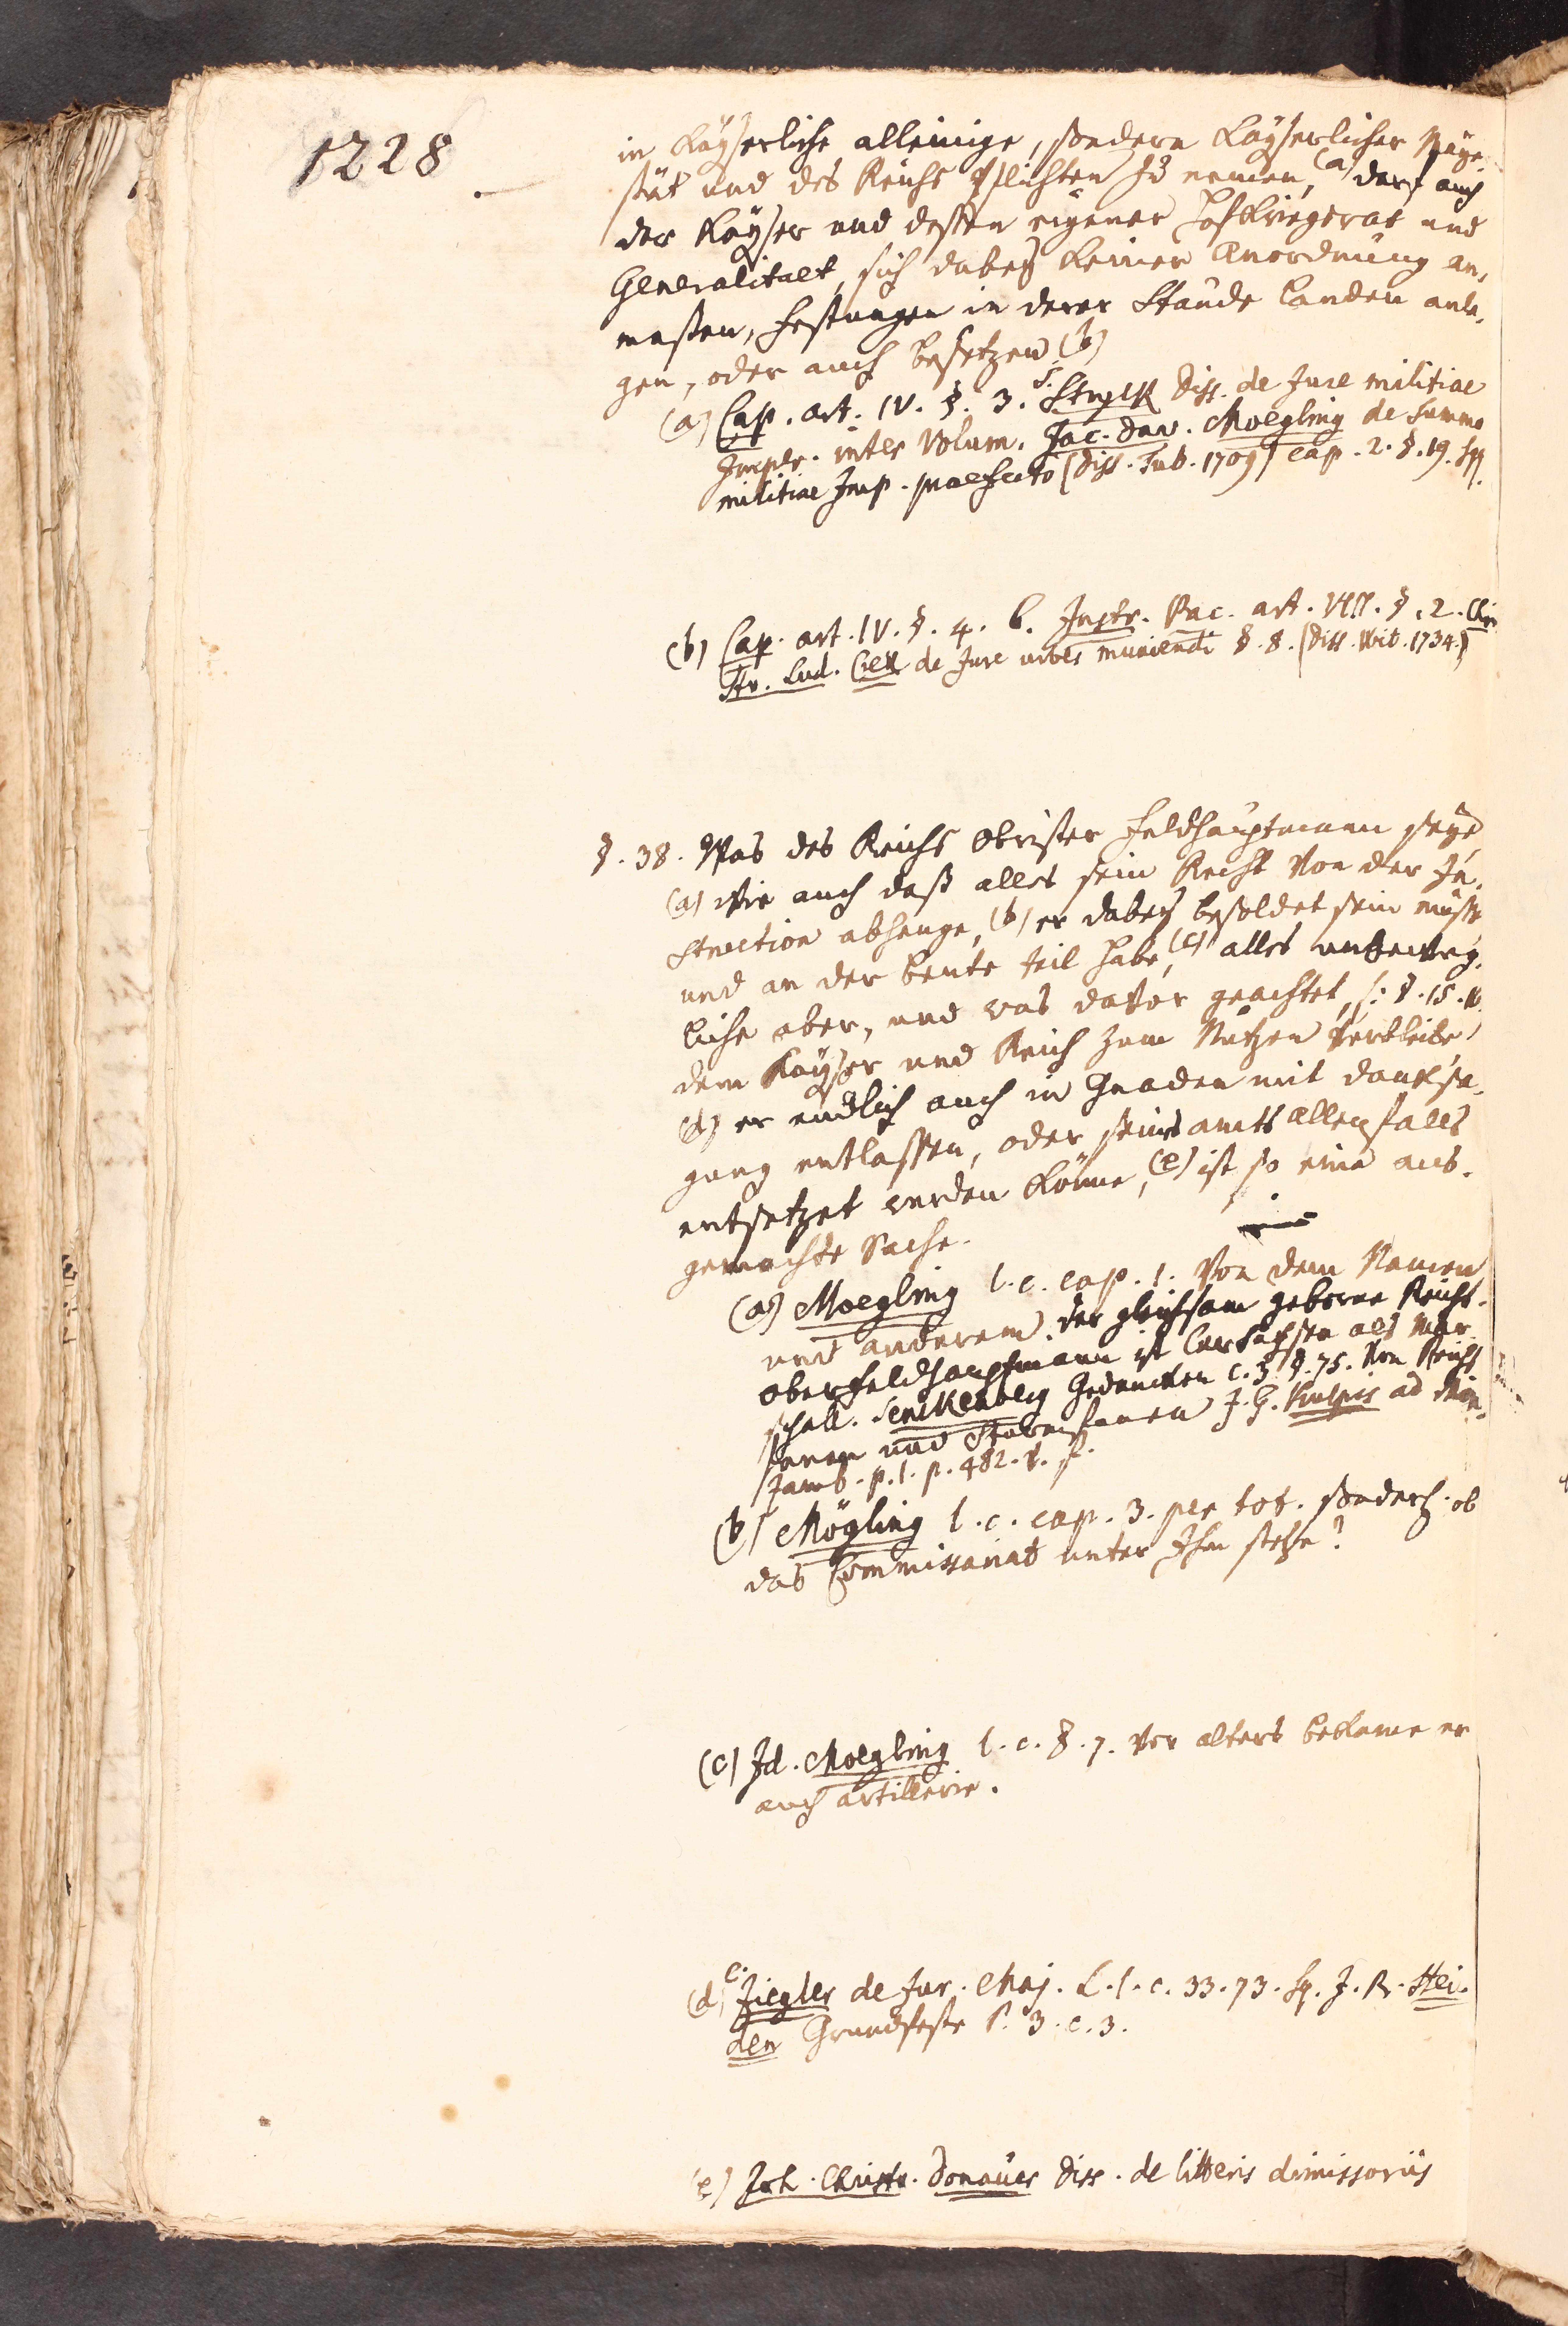 1228
in kaÿserliche alleinige, sondern kaÿserlicher Maye-
stät und des Reichs Pflichten zu nemen, (a) darf auch
der Kaÿser und dessen eigener Hofkriegsrat und
Generalitaet, sich dabeÿ keiner Anordnung an-
massen, Festungen in derer Stände Landen anle-
gen, oder auch besetzen (b)
(a) Cap. art. IV. §. 3. S. Stryck Diss. de Jure militiae
Imper. inter Volum. Jac. Dav. Moegling de Summo
militiae Imp. praefecto (Diss. Tub. 1709) cap. 2. §. 19. sqq.
(b) Cap. art. IV. §. 4. Instr. Pac. art. VIII. §. 2. Chri-
Str. Lud. Crell de Jure urbes muniendi §. 8. (Diss. Wit. 1734.)
§. 38. Was des Reichs Obrister Feldhauptmann seye
(a) Wie auch daß alles sein Recht von der In-
struction abhenge, (b) er dabeÿ besoldet sein müsse
und an der Beute teil habe, (c) alles unbeweg-
liche aber, und was davor geachtet, s. §. 15.
dem Kaÿser und Reich zum Nutzen verbleibe,
(d) er endlich auch in Gnaden mit danksa-
gung entlassen, oder seines amts allenfalls
entsetzet werden könne, (e) ist so eine aus-
gemachte Sache.
(a) Moegling l. c. cap. 1. Von dem Namen
und anderem. der gleichsam geborne Reichs-
oberfeldhauptmann ist Cursachsen als Mar-
schall. Senckenberg Gedancken c. 3. §. 75. Von Reichs
fanen und Sturmfanen J. G. Kulpis ad Mon-
zamb. p. 1. p. 482. s.
(b) Mögling l. c. cap. 3. per tot. sonderl. ob
das Commissariat unter Ihm stehe?
(c) Id. Moegling l. c. §. 7. Vor alters bekame er
auch artillerie.
(d) C. Ziegler de Jur. Maj. L. 1. c. 33. 73. sq. J. R. Stei-
den Grundfeste P. 3. c. 3.
(e) Joh. Christ. Donauer Diss. de litteris dimissoriis